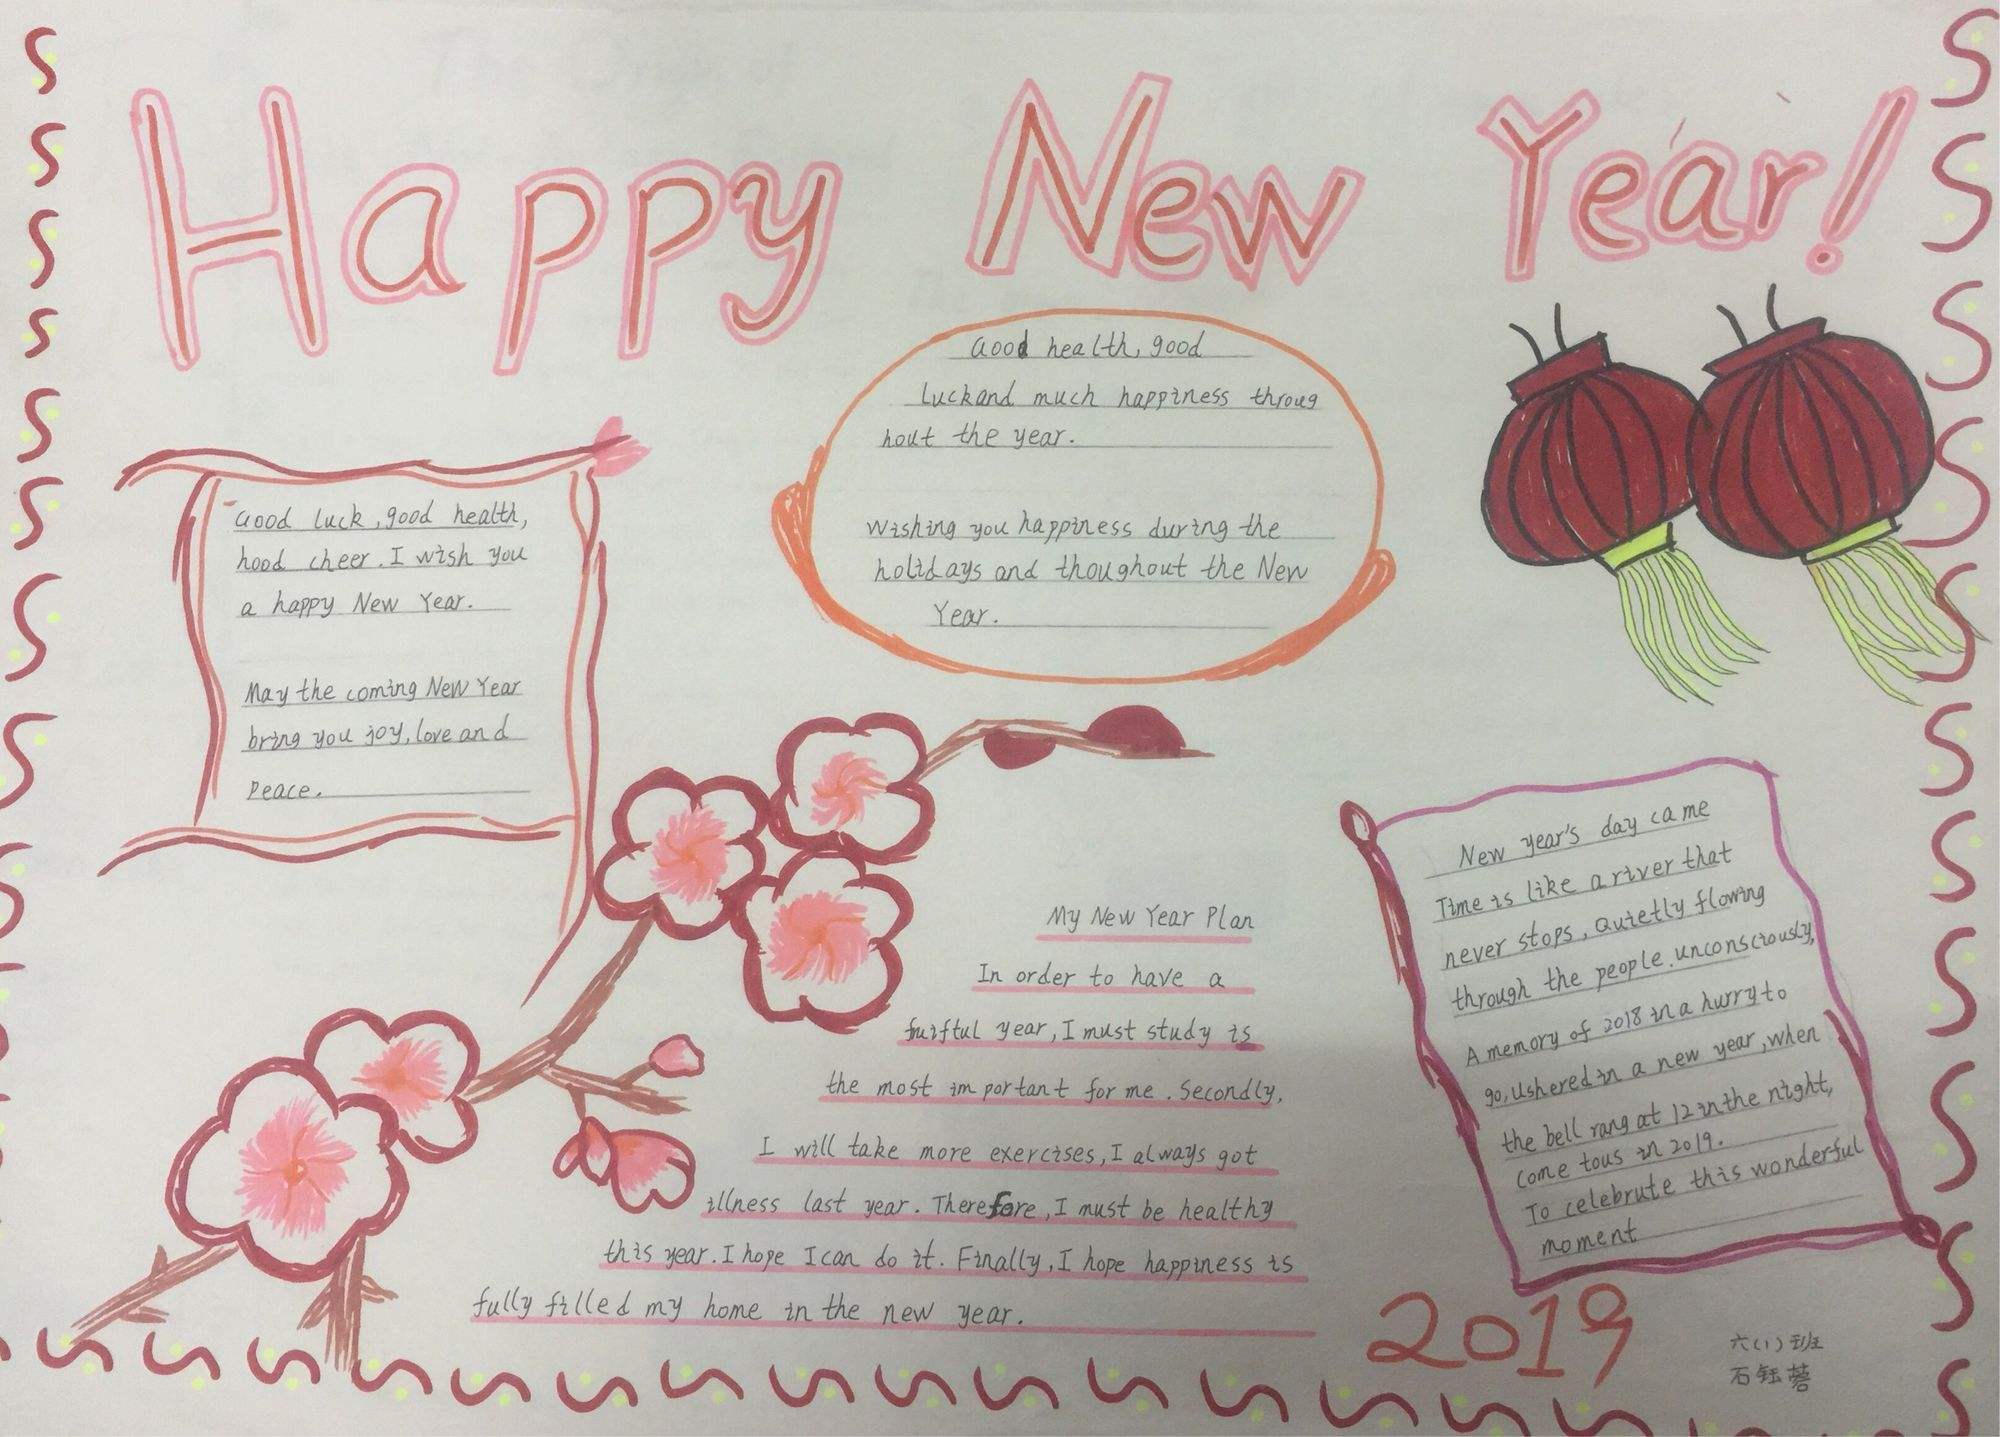 Happy New Year!
Good health, good
luckand much happiness throug
hout the year.
Wishing you happiness during the
holidays and thoughout the New
Year.
Good luck, good health,
hood cheer. I wish you
a happy New Year.
May the coming New Year
bring you joy, love and
Peace.
My New Year Plan
In order to have a
fruiftul year, I must study is
the most important for me. Secondly,
I will take more exercises, I always got
illness last year. Therefore, I must be healthy
this year. I hope I can do it. Finally, I hope happiness is
fully filled my home in the new year.
New year's day came
Time is like a river that
never stops, Quietly flowing
through the people. unconsciously,
A memory of 2018 in a hurry to
go, Ushered in a new year, when
the bell rang at 12 in the night,
come tous in 2019.
To celebrute this wonderful
moment
2019
六(1)班
石钰蓉